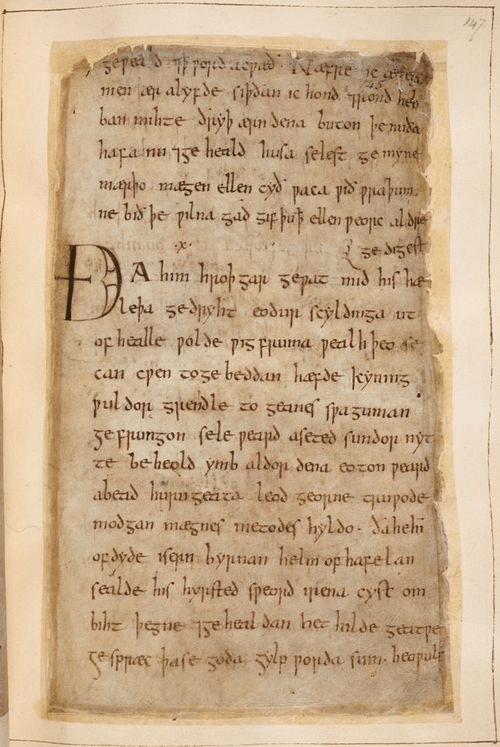 147
geƿeald ⁊ ꝥ ƿord acƿæð. Næfre ic
145
men ær alyfde siþðan ic hond ⁊ rond heb
ban mihte ðryþ ærn dena buton þe nuða
hafa nu ⁊ ge heald husa selest ge myne
mærþo mægen ellen cyð ƿaca ƿið ƿraþum
ne bið þe ƿilna gad gif þu ꝥ ellen ƿeorc aldre
·x· ge digest
ÐA him hroþgar geƿat mid his hæ
leþa gedryht eodur scyldinga ut
of healle ƿolde ƿigfruma ƿealhþeo se
can cƿen to ge beddan hæfde kyning
ƿuldor grendle to geanes sƿa guman
ge frungon sele ƿeard aseted sundor nyt
te beheold ymb aldor dena eoton ƿeard
abead huru geata leod georne truƿode
modgan mægnes metodes hyldo. ða he hī
of dyde isern byrnan helm of hafelan
sealde his hyrsted sƿeord irena cyst om
biht þegne ⁊ ge healdan het hilde geatƿe
ge spræc þa se goda gylp ƿorda sum. beoƿulf